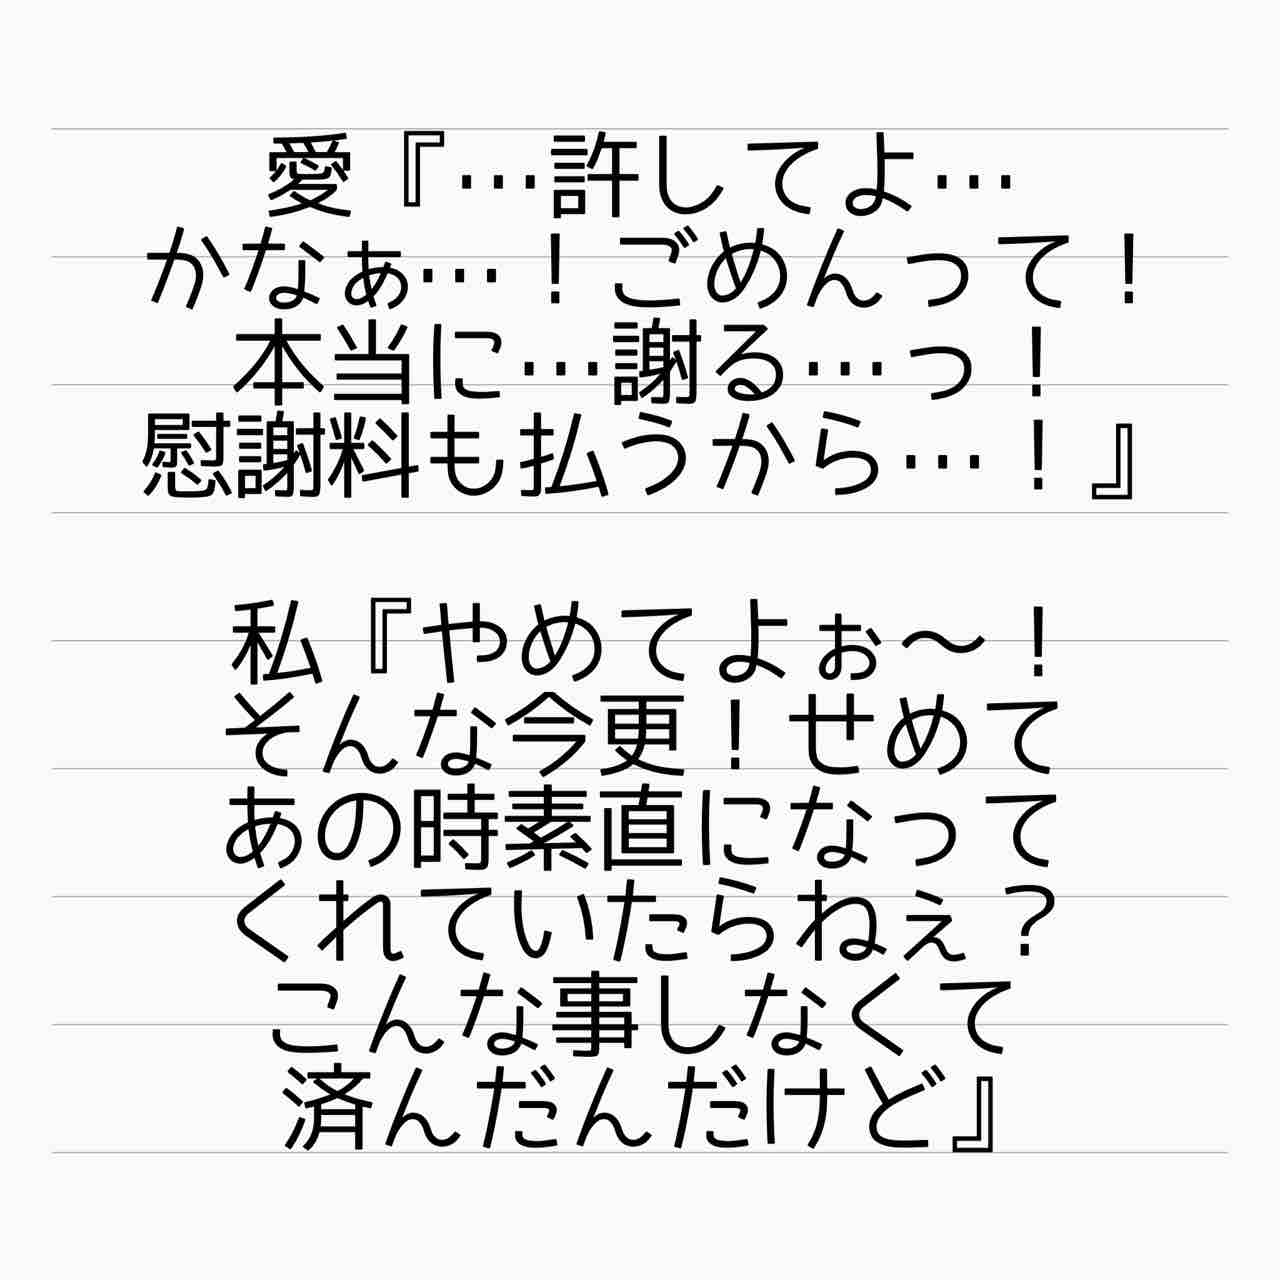 愛『…許してよ…
かなぁ…！ごめんって！
本当に…謝る…っ！
慰謝料も払うから…！』
私『やめてよぉ〜！
そんな今更！せめて
あの時素直になって
くれていたらねぇ？
こんな事しなくて
済んだんだけど』